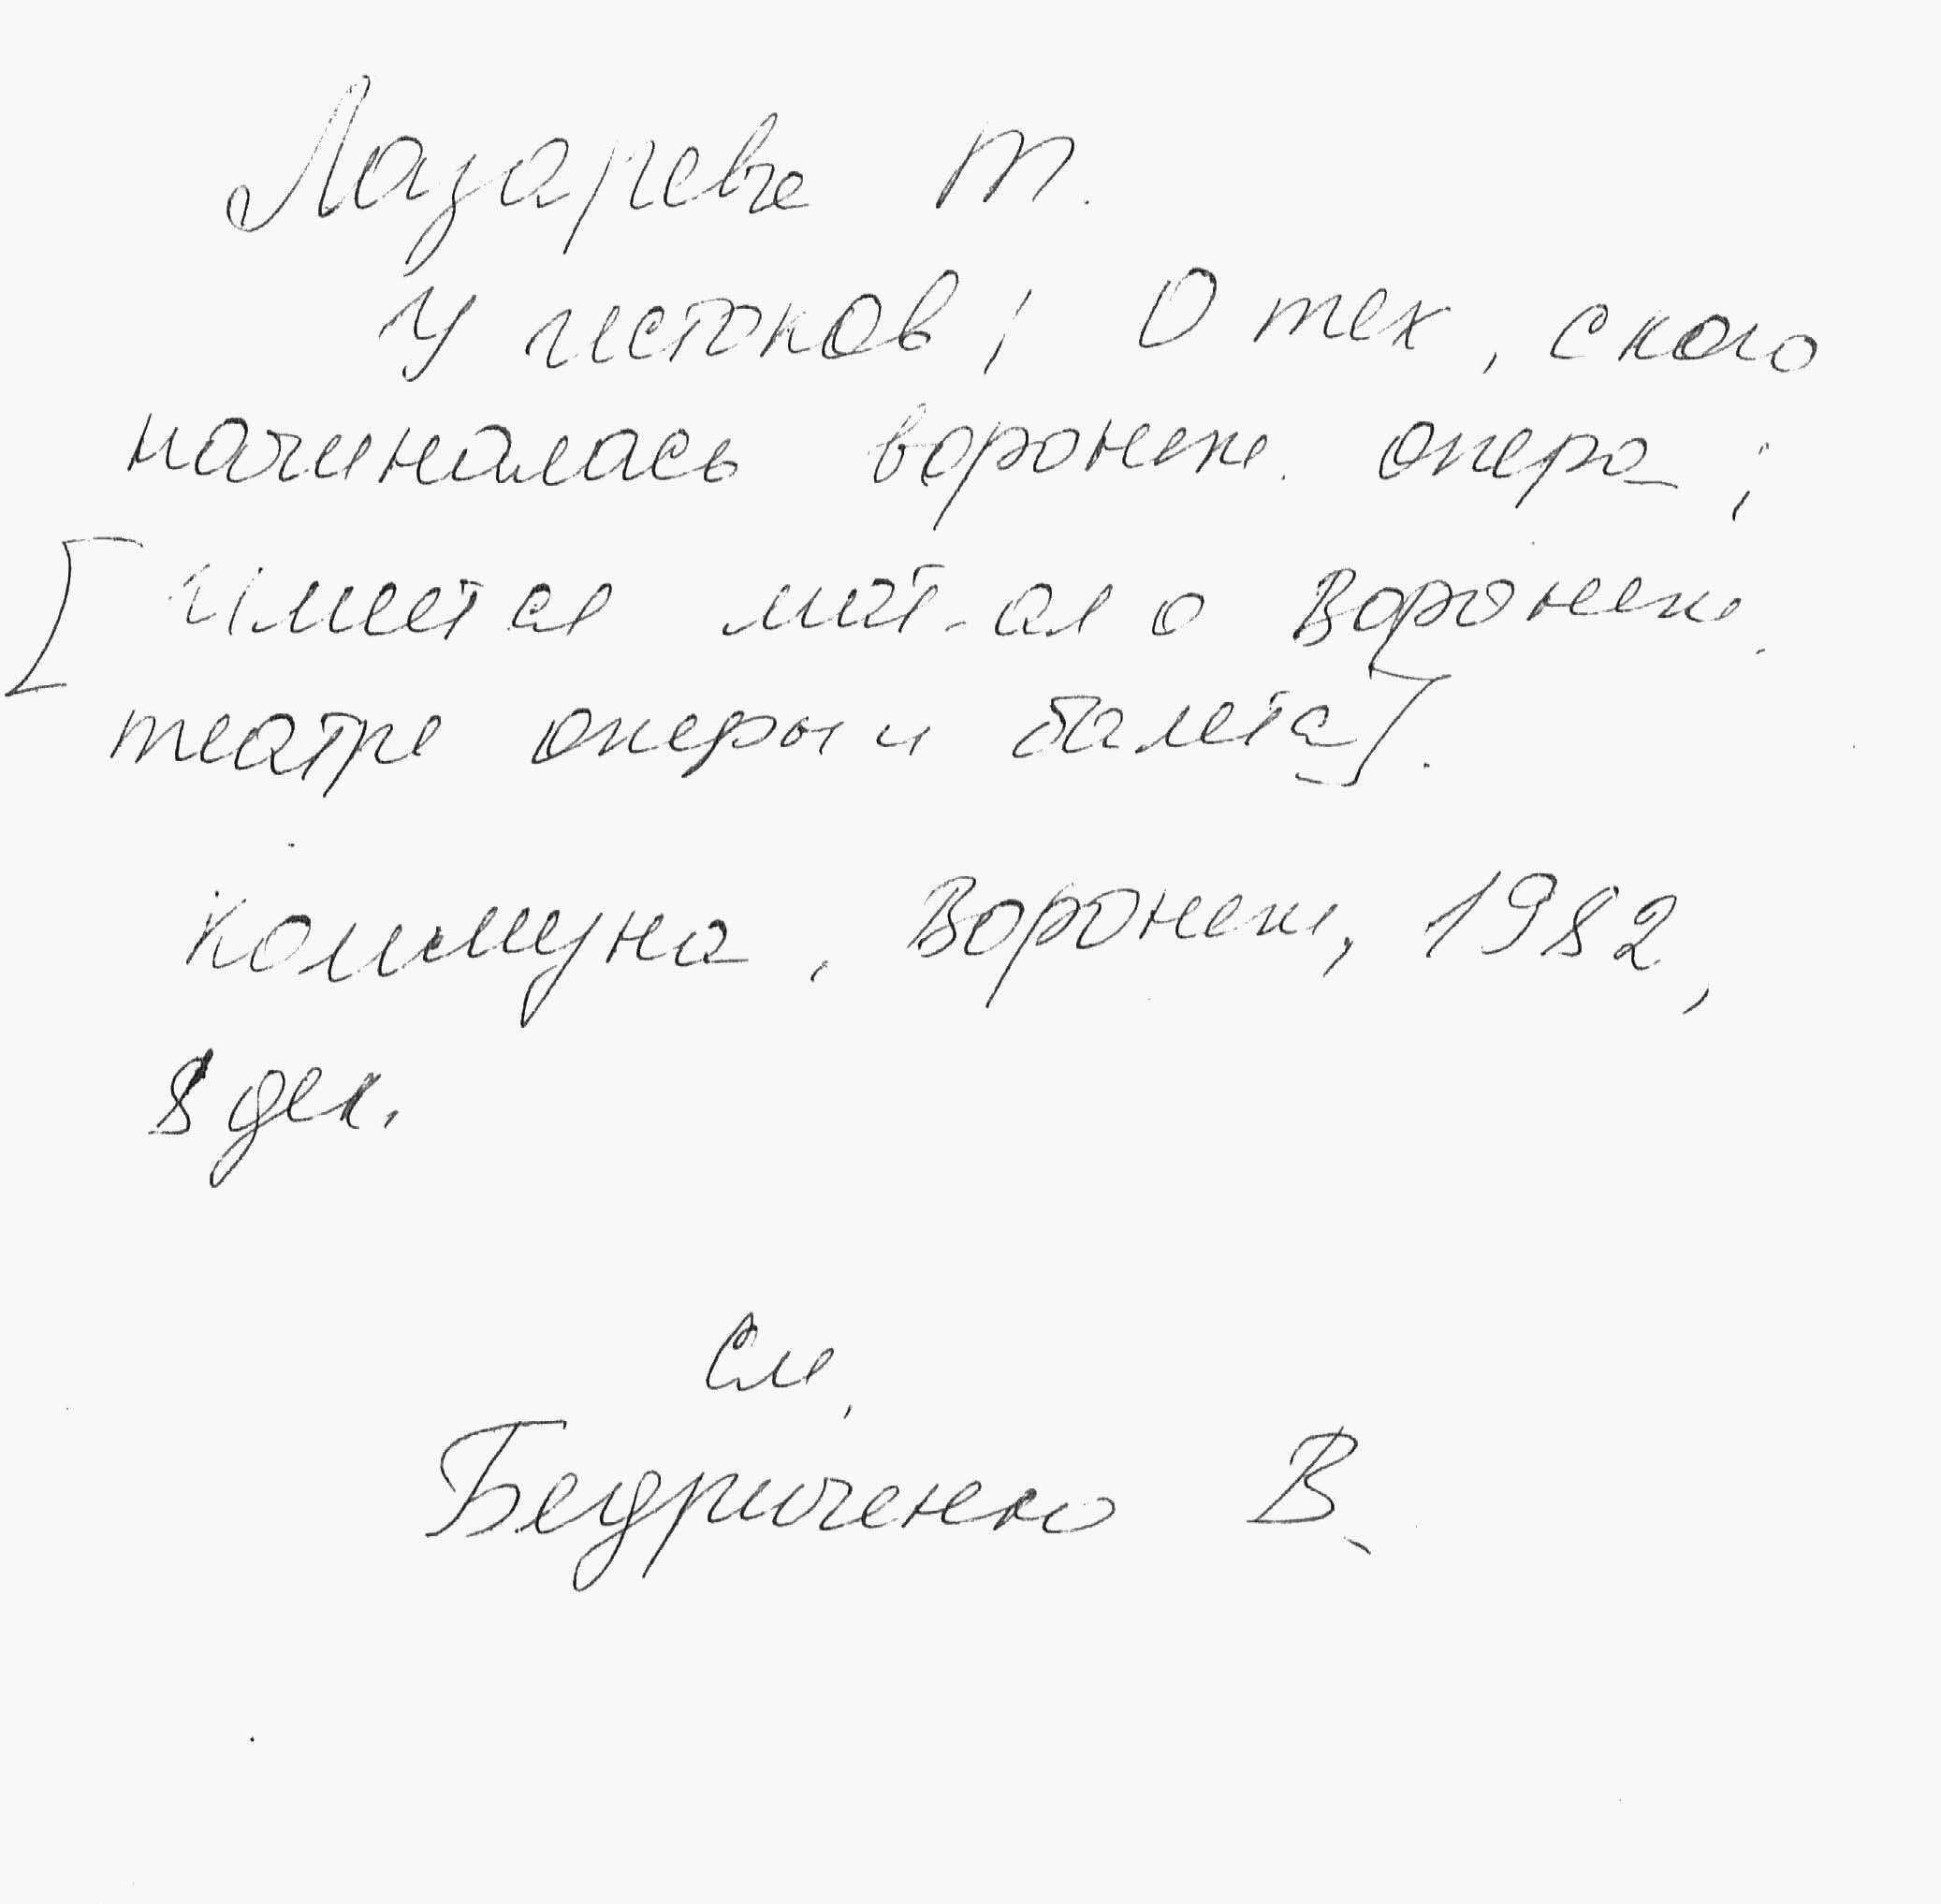 Лазарева Т.
У истоков; О тех, с кого
начиналась воронеж. опера;
[Имеется мат-ал о Воронеж.
театре оперы и балета].
Коммуна, Воронеж, 1982,
8 дек.
См.
Бедриченко В.